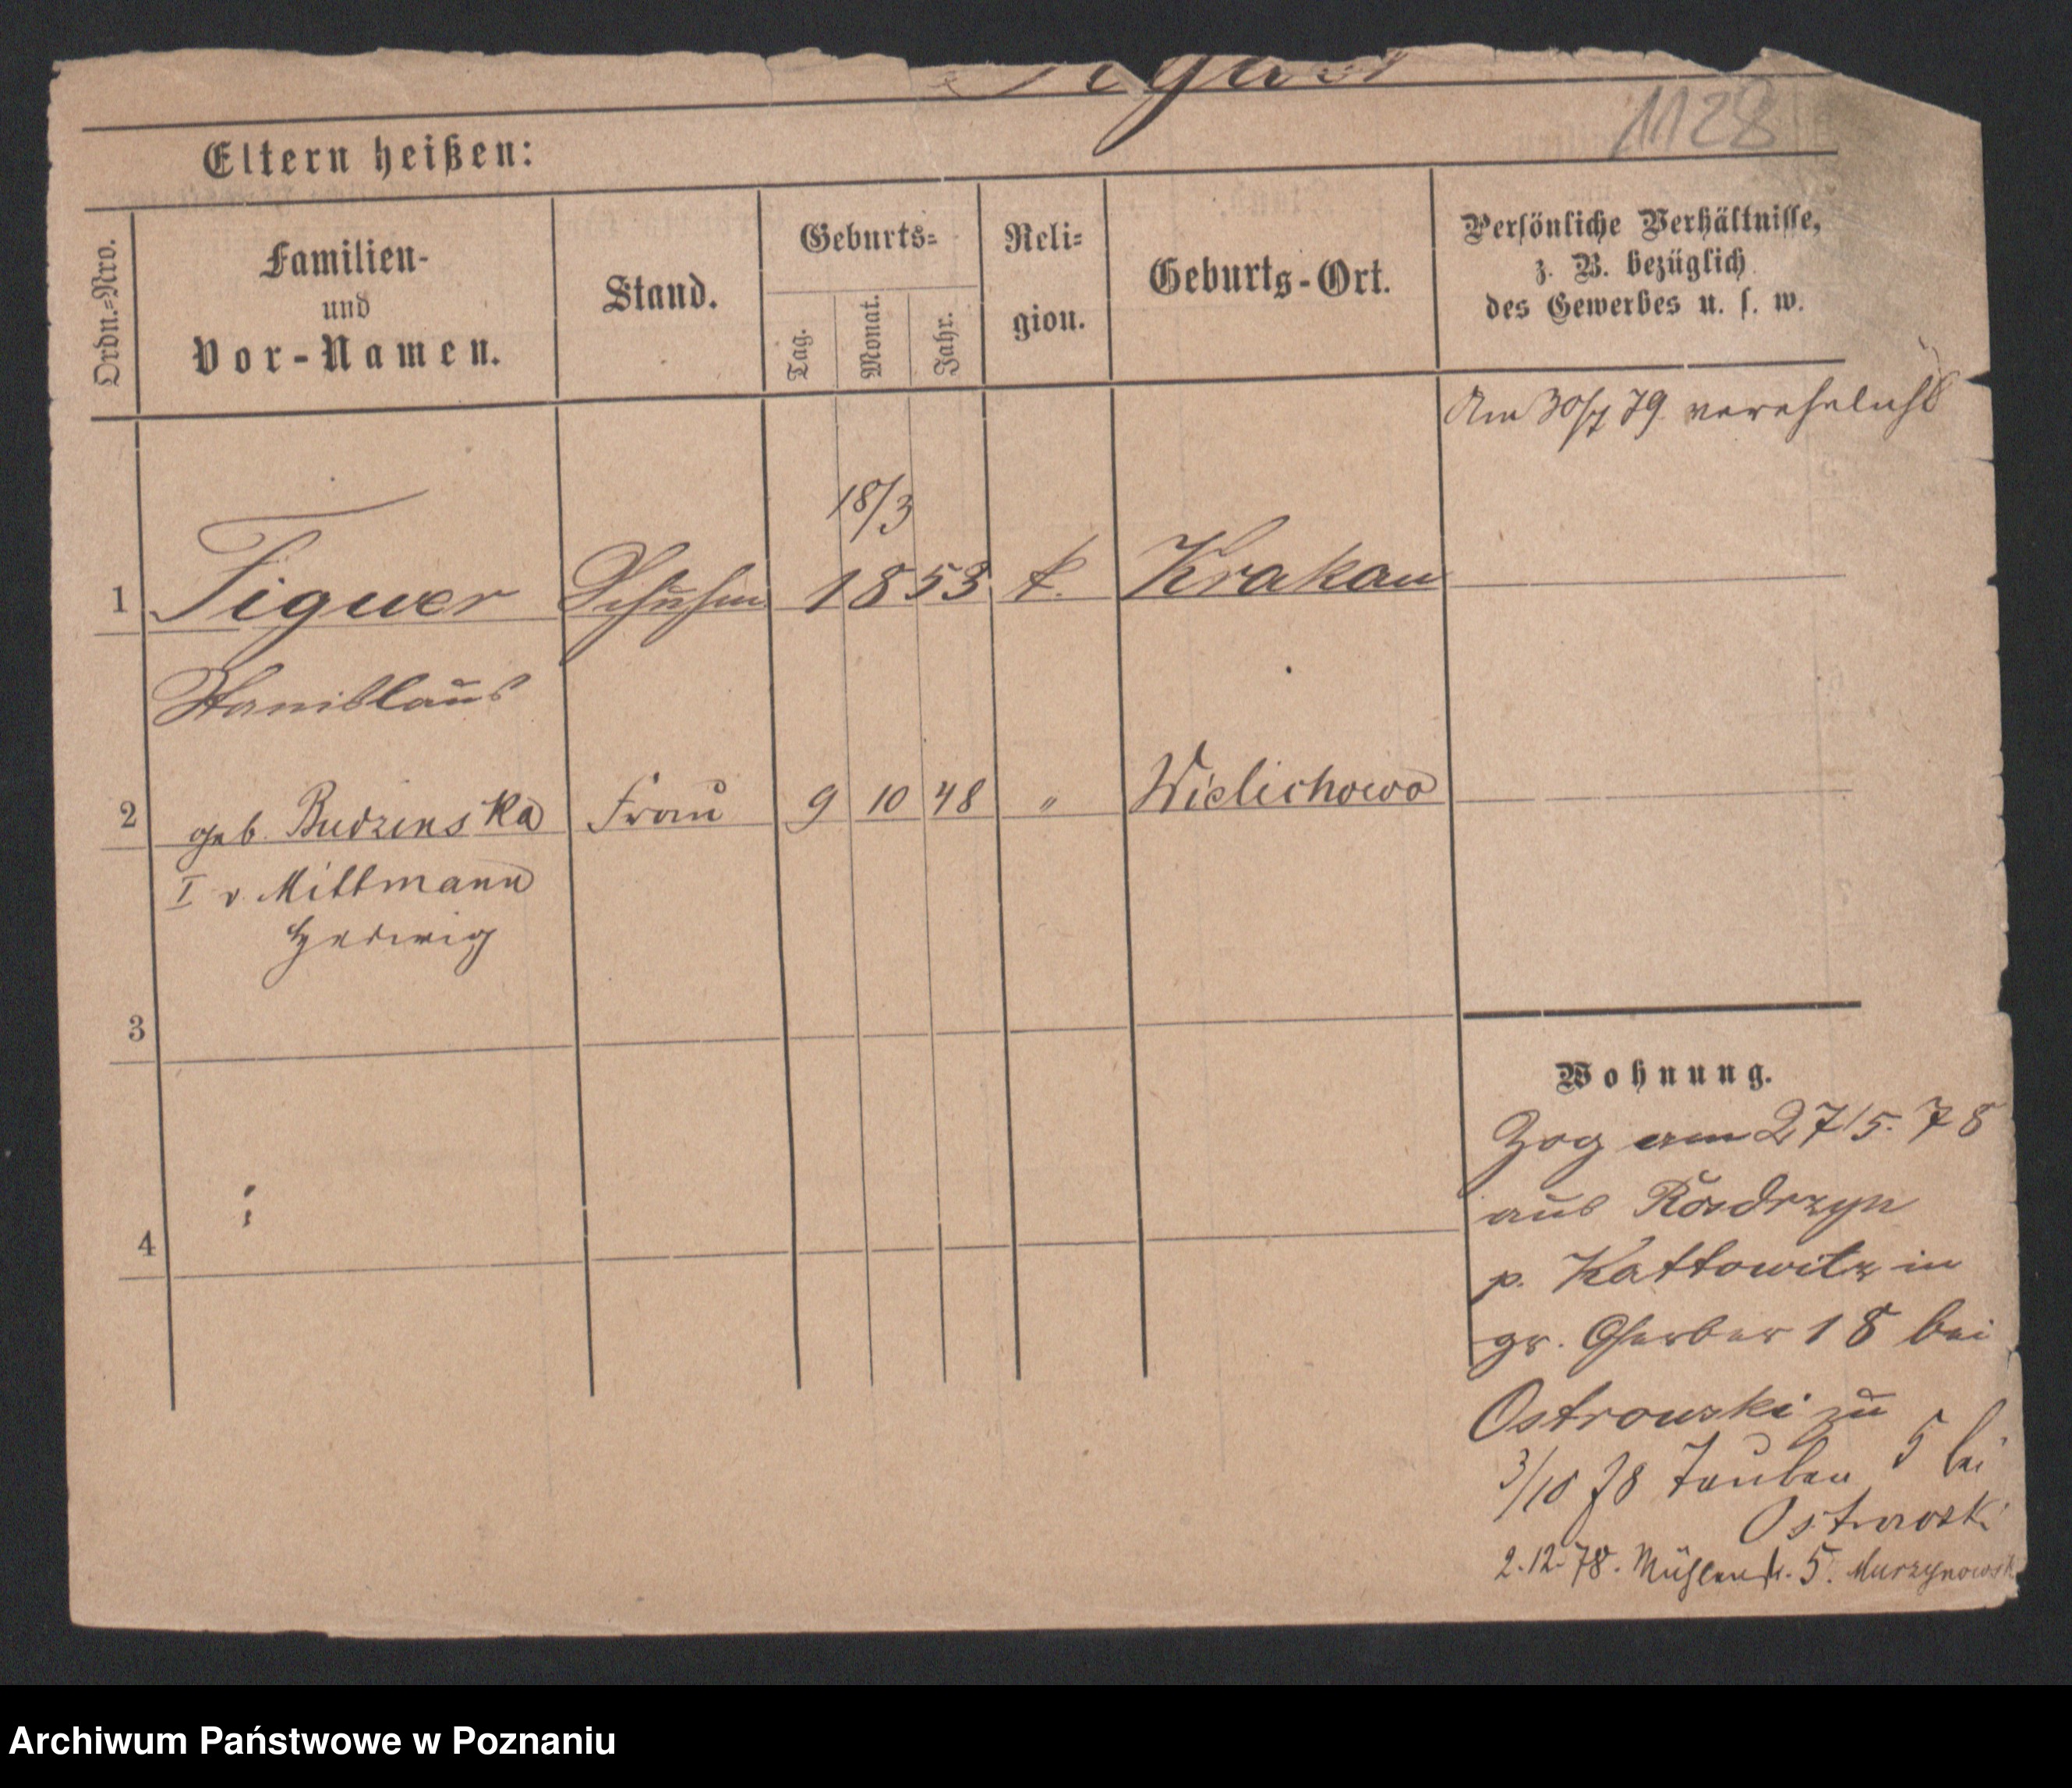 1128
Eltern heißen:
Ordn.=Nro.
Familien-
und
Vor-Namen.
Stand.
Geburts=
Tag.
Monat.
Jahr.
Reli=
gion.
Geburts-Ort.
Persönliche Verhältnisse,
z. B. bezüglich
des Gewerbes u. s. w.
Am 30/7 79 verehelicht
18/3
1 Figwer 1853 k. Krakau
Stanislaus
2 geb. Budzinska Frau 9 10 48 " Wielichowo
I v. Mittmann
Hedwig
3
4
Wohnung.
Zog am 27/5. 78
aus Rosdrzyn
p. Kattowitz in
gr. Gerber 18 bei
Ostrowski zu
3/10 78 Tauben 5 bei
Ostrowski
2.12.78. Mühlenstr. 5. Murzynowsk
Archiwum Państwowe w Poznaniu